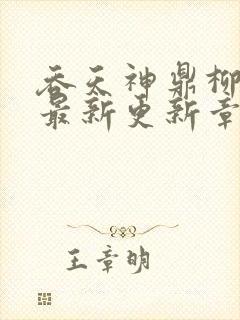 吞天神鼎柳
最新更新章
王章明